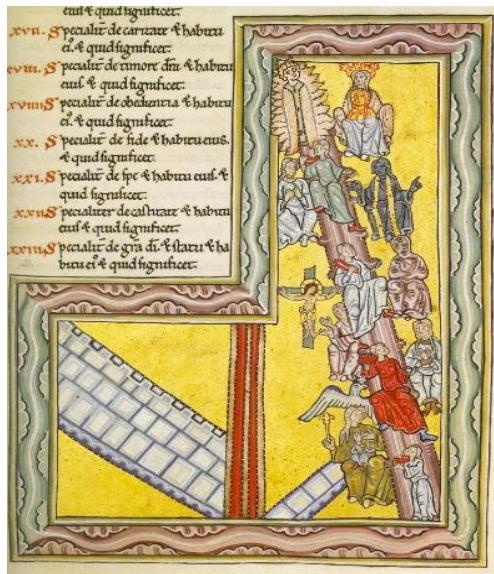 eius & quid significet.
xvii. Specialit̄ de caritate & habitu
ei⁹. & quid significet.
xviii. Specialit̄ de timore dn̄i & habitu
eius. & quid significet.
xviiii. Specialit̄ de obedientia & habitu
ei⁹. & quid significet.
xx. Specialit̄ de fide & habitu eius.
& quid significet.
xxi. Specialit̄ de spe & habitu eius. &
quid significet.
xxii. Specialiter de castitate & habitu
eius & quid significet.
xxiii. Specialit̄ de gr̄a dī. & statu & ha
bitu ei⁹ & quid significet.